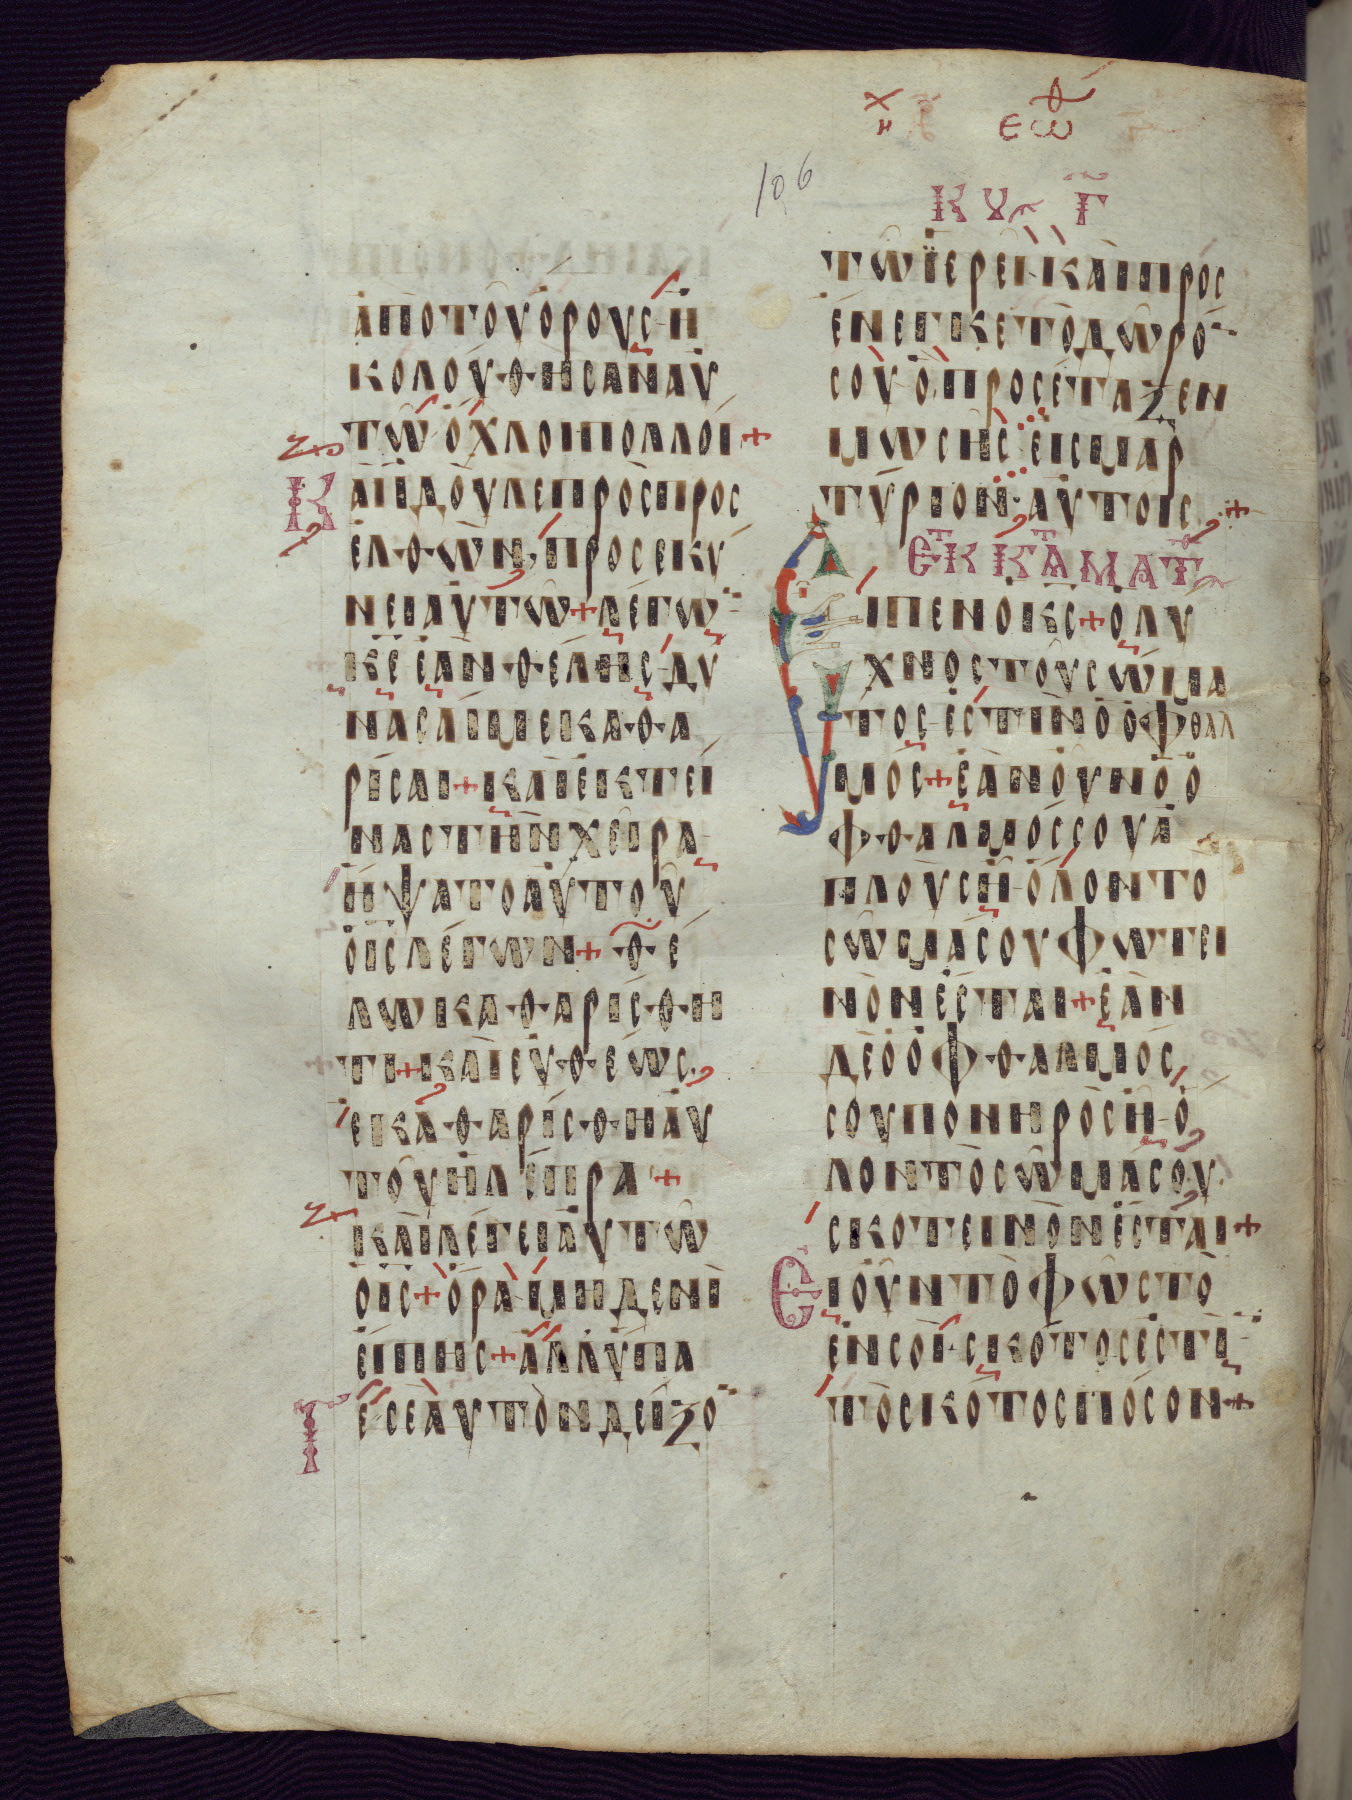 106
ΚΥ Γ
ἀπὸ τοῦ ὄρους ἠ
κολούθησαν αὐ
τῶ ὄχλοι πολλοί +
Καὶ ἰδοὺ λεπρὸς προς
ελθὼν, προσεκύ
νει αὐτῶ + λέγω
κ̅ε̅ ἐὰν θέλης δύ
νασαί με καθα
ρίσαι + καὶ ἐκτεί
νας τὴν χεῖρα
ἥψατο αὐτοῦ
ὁ ι̅ς̅ λέγων + θέ
λω καθαρίσθη
τι + καὶ εὐθέως
ἐκαθαρίσθη αὐ
τοῦ ἡ λέπρα +
καὶ λέγει αὐτῶ
ὁ ι̅ς̅ + ὅρα μηδενὶ
εἴπης + ἀλλ' ὕπα
γε σεαυτὸν δεῖξο
τῶ ἱερεῖ καὶ προσ
ένεγκε τὸ δῶρό
σου ὃ προσέταξεν
μωσῆς εἰς μαρ
τύριον αὐτοῖς +
ἐκ κ̅τ̅ ματ
Εἶπεν ὁ κ̅ς̅ + ὁ λύ
χνος τοῦ σώμα
τος ἐστὶν ὁ ὀφθαλ
μός + ἐὰν οὖν ὁ ὀ
φθαλμός σου ἁ
πλοῦς ἦ ὅλον τὸ
σῶμά σου φωτει
νὸν ἔσται + ἐὰν
δὲ ὁ ὀφθαλμός
σου πονηρὸς ἦ ὅ
λον τὸ σῶμά σου
σκοτεινὸν ἔσται +
Εἰ οὖν τὸ φῶς τὸ
ἐν σοὶ σκότος ἐστὶ
τὸ σκότος πόσον +